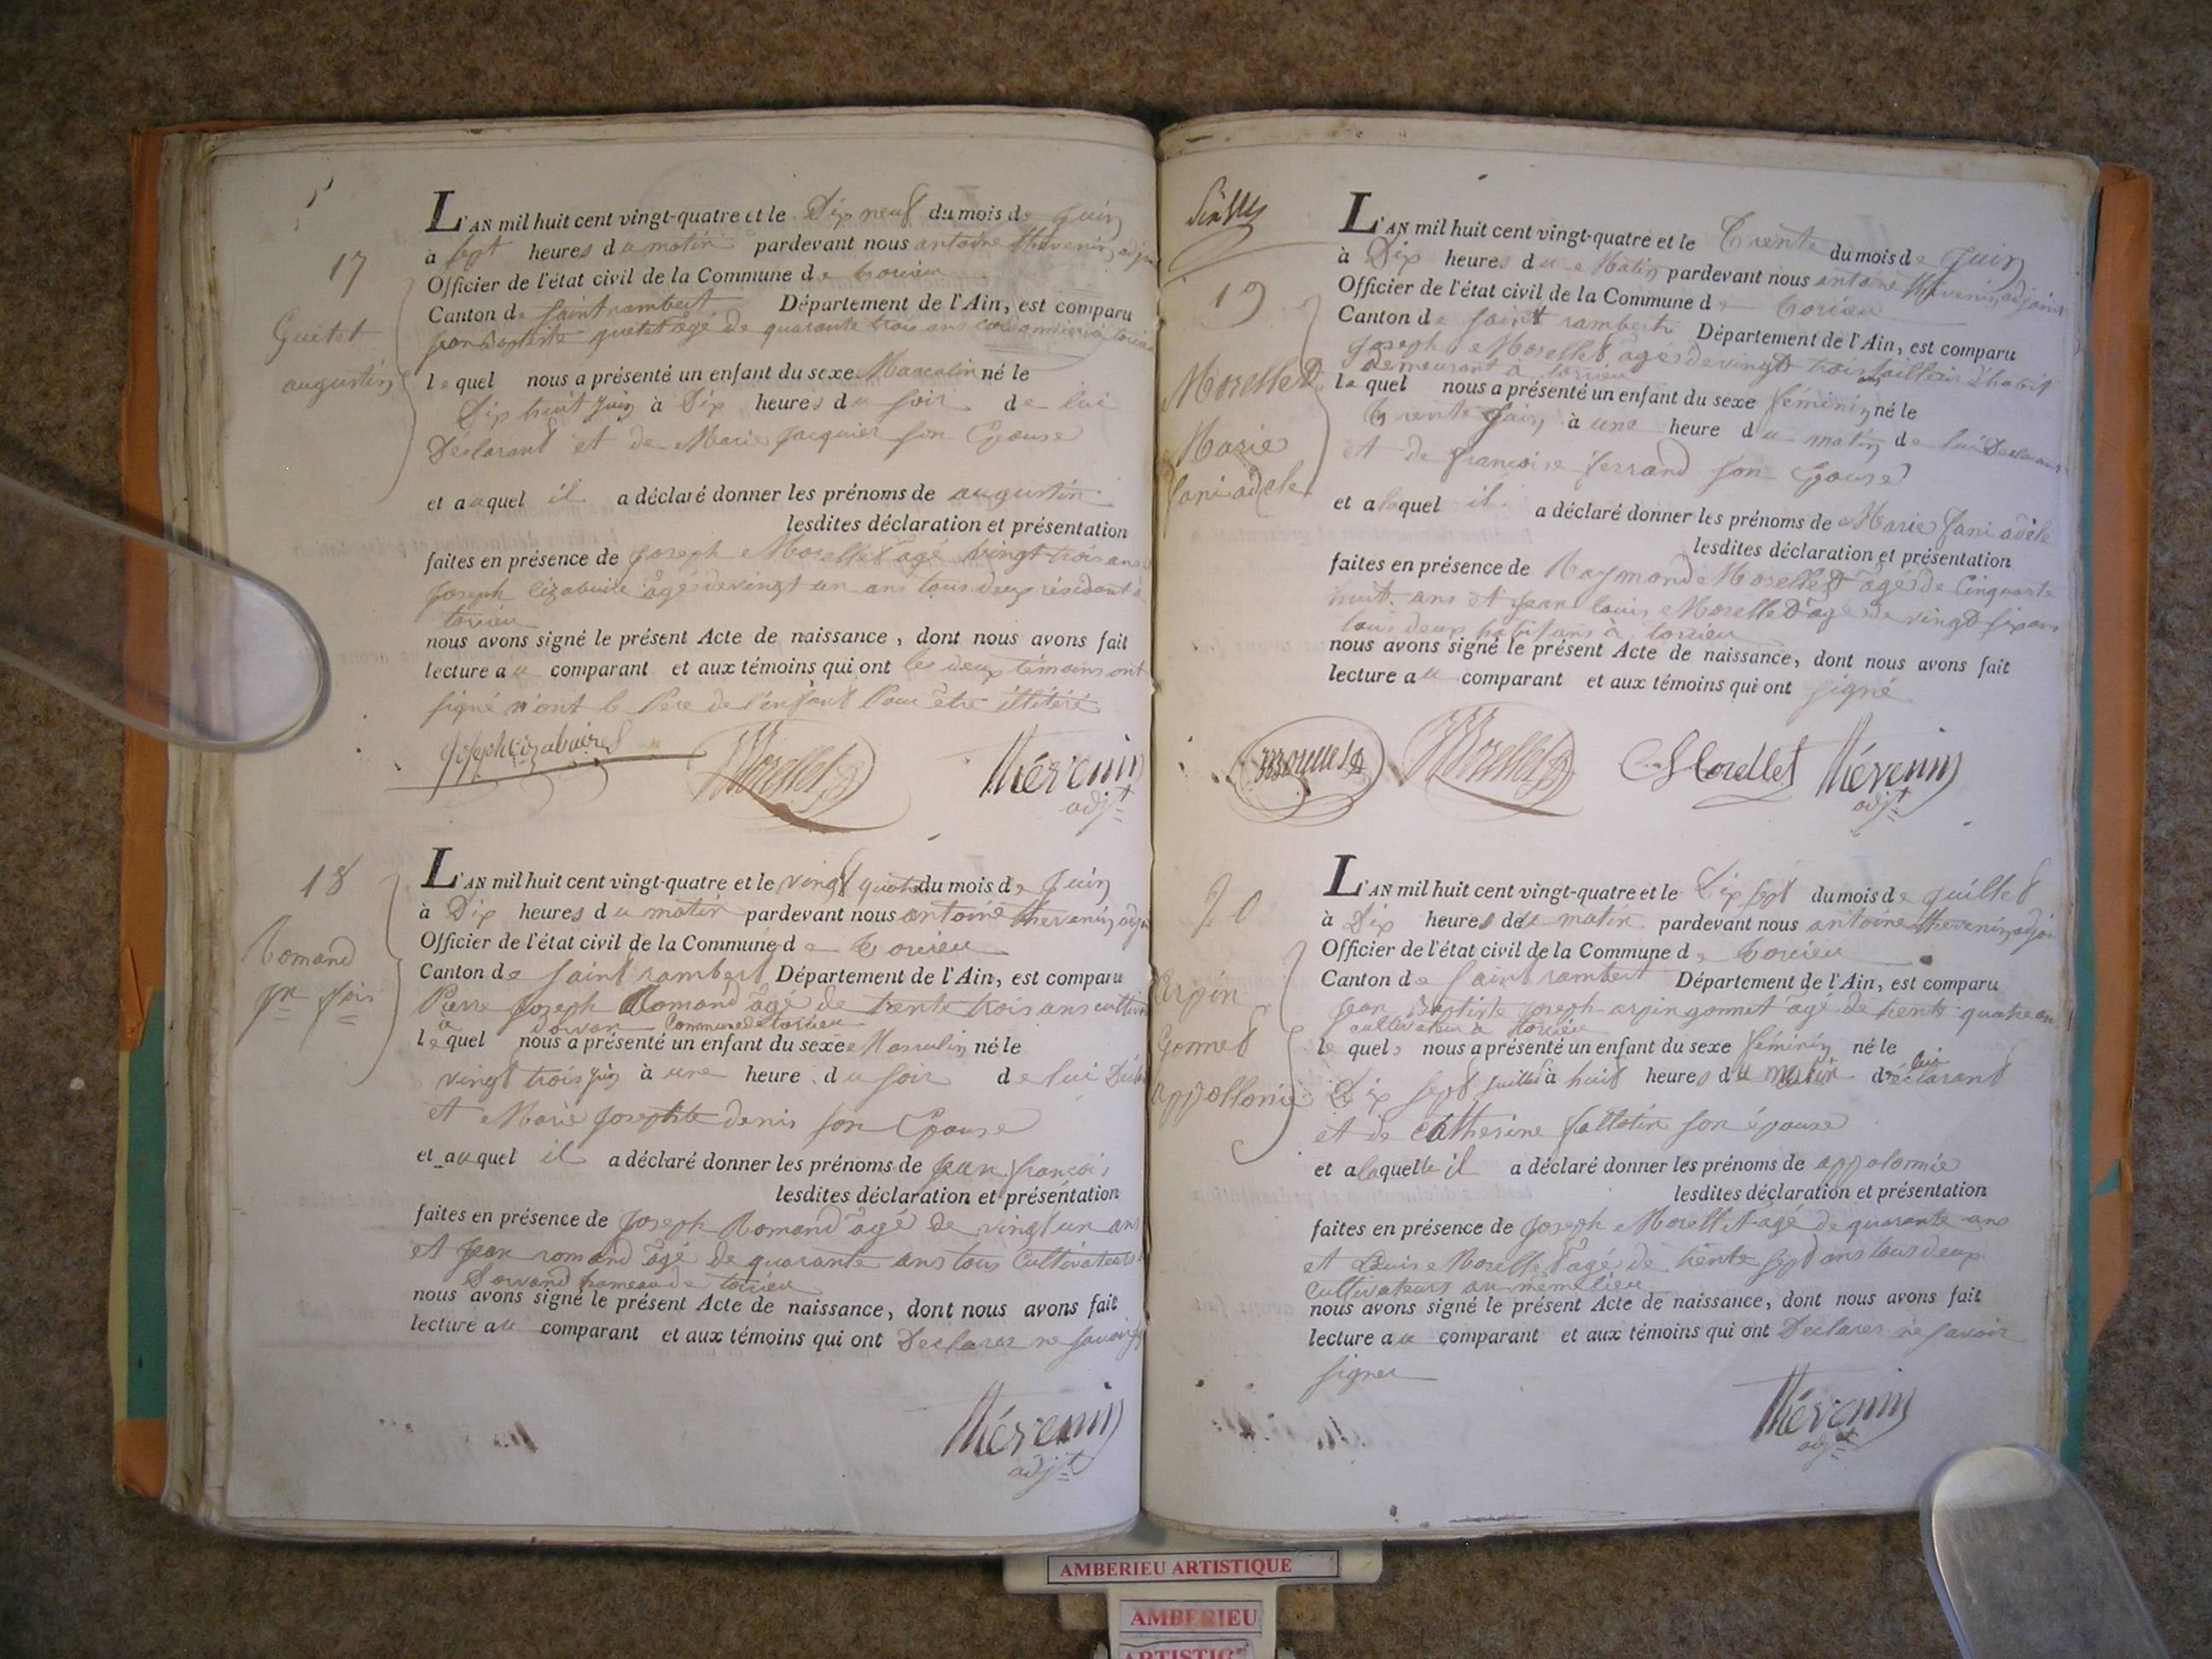 17
Guetet
augustin
L'AN mil huit cent vingt-quatre et le Dix neuf du mois de Juin
à sept heures du matin pardevant nous antoine thevenin adjoin
Officier de l'état civil de la Commune de torcieu
Canton de saint rambert Département de l'Ain, est comparu
jean Baptiste guetet âgé de quarante trois ans cordonnier a torcieu
lequel nous a présenté un enfant du sexe Masculin né le
Dix huit juin à Dix heures du soir de lui
Déclarant et de Marie jacquier son Epouse
et auquel il a déclaré donner les prénoms de augustin
lesdites déclaration et présentation
faites en présence de joseph Morellet âgé vingt trois ans
joseph cizabuire âgé de vingt un ans tous deux résidant à
torcieu
nous avons signé le présent Acte de naissance, dont nous avons fait
lecture au comparant et aux témoins qui ont les deux témoins ont
signé n'ont le Pere de l'enfant Pour être illitéré
joseph cizabuires Morellet thévenin
adjt
18
Romand
jn fois
L'AN mil huit cent vingt-quatre et le vingt quatre du mois de Juin
à Dix heures du matin pardevant nous antoine thevenin adjn
Officier de l'état civil de la Commune de torcieu
Canton de saint rambert Département de l'Ain, est comparu
Pierre joseph Romand âgé de trente trois ans cultiv
a Dorvan Commune de torcieu
lequel nous a présenté un enfant du sexe Masculin né le
vingt trois juin à une heure du soir de lui Décla
et Marie josephte denis son Epouse
et auquel il a déclaré donner les prénoms de jean françois
lesdites déclaration et présentation
faites en présence de joseph Romand âgé de vingt un ans
et jean romand âgé de quarante ans tous Cultivateurs
Dorvand hameau de torcieu
nous avons signé le présent Acte de naissance, dont nous avons fait
lecture au comparant et aux témoins qui ont Declarer ne savoir
thévenin
adjt
19
Morellet
Marie
fani adele
L'AN mil huit cent vingt-quatre et le trente du mois de Juin
à Dix heures du Matin pardevant nous antoine thevenin adjoint
Officier de l'état civil de la Commune de torcieu
Canton de saint rambert Département de l'Ain, est comparu
joseph Morellet âgé de vingt trois ans tailleur d'habit
demeurant a torcieu
lequel nous a présenté un enfant du sexe féminin né le
trente juin à une heure du matin de lui Déclarant
et de françoise ferrand son Epouse
et a laquel il a déclaré donner les prénoms de Marie fani adele
lesdites déclaration et présentation
faites en présence de Raymond Morellet âgé de Cinquante
huit ans et jean louis Morellet âgé de vingt six ans
tous deux habitans à torcieu
nous avons signé le présent Acte de naissance, dont nous avons fait
lecture au comparant et aux témoins qui ont signé
Morellet Morellet Morellet thévenin
adjt
20
arpin
Gonnet
appollonie
L'AN mil huit cent vingt-quatre et le Dix sept du mois de juillet
à Dix heures du matin pardevant nous antoine thevenin adjoin
Officier de l'état civil de la Commune de torcieu
Canton de saint rambert Département de l'Ain, est comparu
jean Baptiste joseph arpin gonnet âgé de trente quatre an
cultivateur a torcieu
lequel nous a présenté un enfant du sexe féminin né le
Dix sept juillet à huit heures du matin de lui déclarant
et de catherine fallotin son épouse
et a laquelle il a déclaré donner les prénoms de appolonnie
lesdites déclaration et présentation
faites en présence de joseph Morellet âgé de quarante ans
et Louis Morellet âgé de trente sept ans tous deux
cultivateurs au même lieu
nous avons signé le présent Acte de naissance, dont nous avons fait
lecture au comparant et aux témoins qui ont Declarer ne savoir
signer
thévenin
adjt
AMBERIEU ARTISTIQUE
AMBERIEU